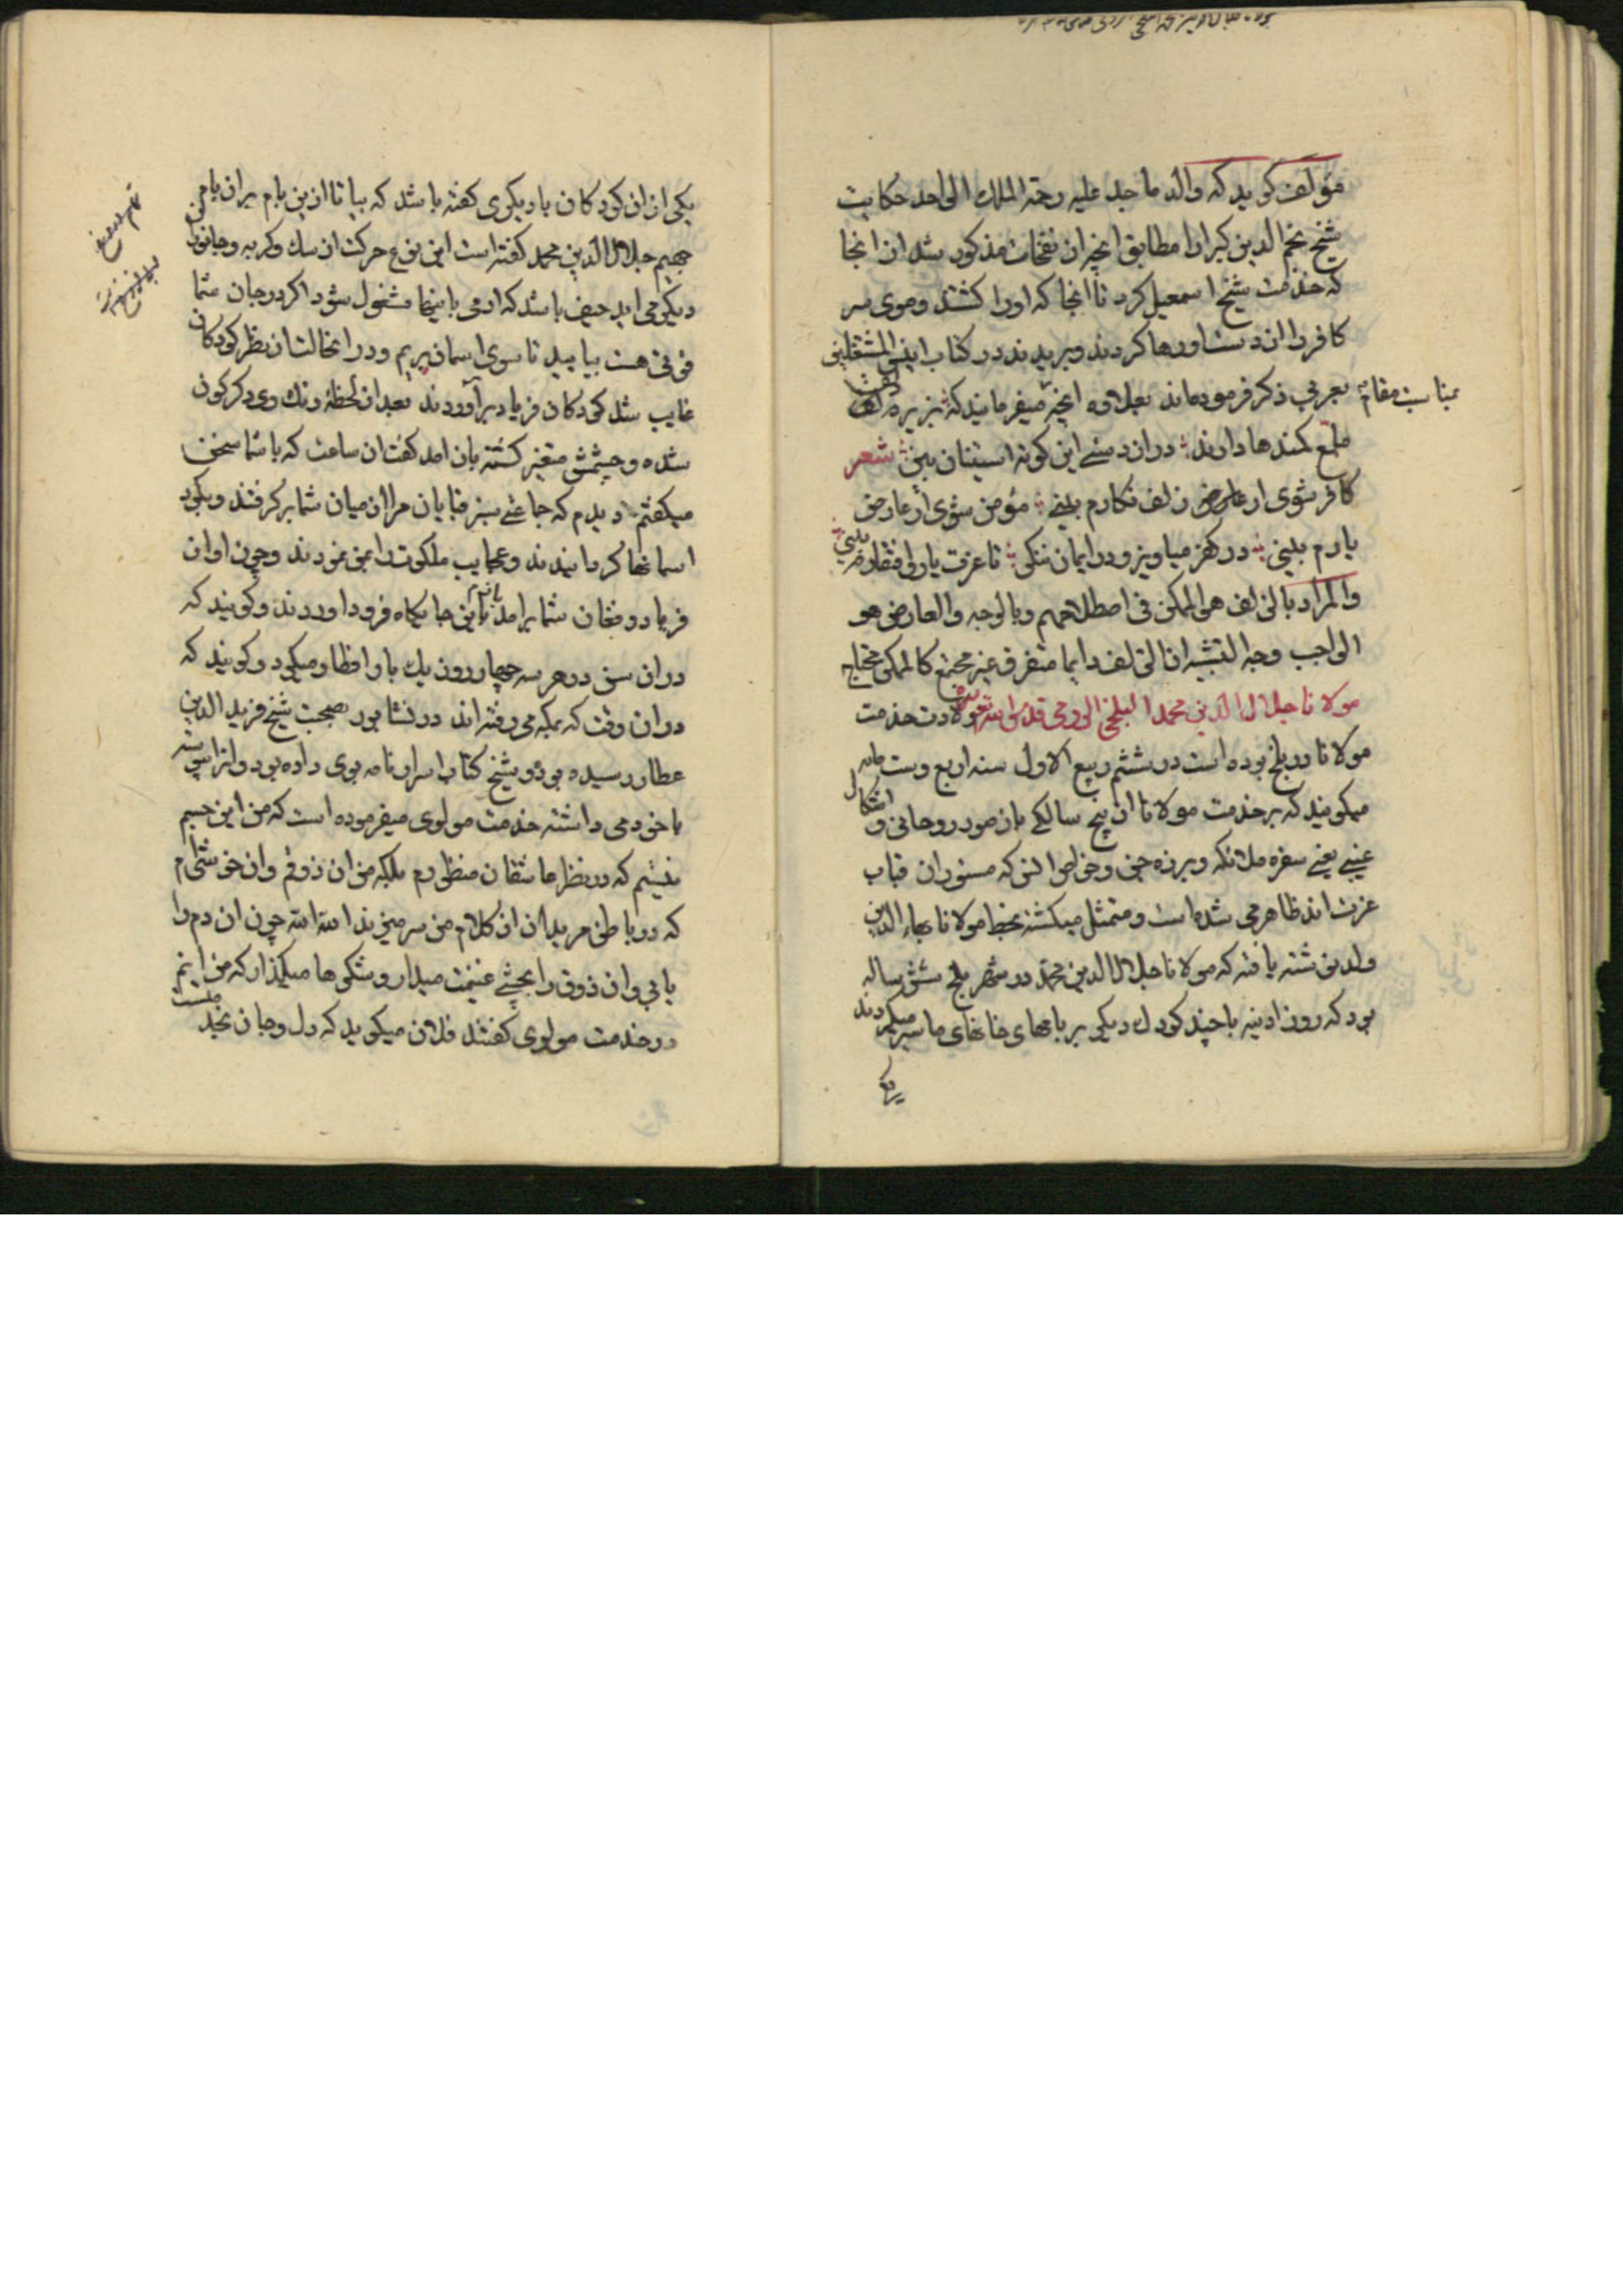 مؤلف کوید که والد ماجد علیه رحمة الملك الواحد حکایت
شیخ نجم الدین کبرا را مطابق انچه از نفحات مذکور شد از انجا
که خدمت شیخ اسمعیل کرد تا انجا که اورا کشتند و موی سر
کافر را از دست او رها کردند و بریدند در کتاب انیس المشتغلین
بمناسبت مقام
بتعریفی ذکر فرموده‌اند بعلاوه انچه میفرمایند که بزیر زلف
ملمع کمندها دارند دراز دستی این کوته استینان بین شعر
کافر شوی ار زلف نکارم بینی مؤمن شوی ار عارض
یارم بینی در کفر میاویز و در ایمان منکر تا عزت یار و افتقارم بینی
والمراد بالزلف هو الممکن فی اصطلاحهم وبالوجه والعارض هو
الواجب وجه التشبیه ان الزلف دایما متفرق غیر مجتمع کالممکن محتاج
مولانا جلال الدین محمد البلخی الرومی قدس الله سره ولادت خدمت
مولانا در بلخ بوده است در ششم ربیع الاول سنه اربع وستمایه
میکویند که بر خدمت مولانا از پنج سالکی باز صور روحانی و اشکال
غیبی یعنی سفره ملائکه و برره جن و خواص انس که مستوران قباب
عزت اند ظاهر می شده است و متمثل میکشته بخط مولانا بهاء الدین
ولد نوشته یافته که مولانا جلال الدین محمد در شهر بلخ شش ساله
بود که روز ادینه با چند کودك دیکر بر بامهای خانهای ما سیر میکردند
یکی
یکی از ان کودکان با دیکری کفته باشد که بیا تا ازین بام بران بام
جهیم جلال الدین محمد کفته است این نوع حرکت از سك وکربه وجانوران
دیکر می اید حیف باشد که ادمی باینها مشغول شود اکر در جان شما
قوتی هست بیایید تا سوی اسمان پریم و دران حالت از نظر کودکان
غایب شد کودکان فریاد براوردند بعد از لحظه رنك وی دکرکون
شده وچشمش متغیر کشته باز امد کفت ان ساعت که باشما سخن
میکفتم دیدم که جماعتی سبز قبایان مرا از میان شما برکرفتند وبکرد
اسمانها کردانیدند وعجایب ملکوت را بمن نمودند وچون اواز
فریاد و فغان شما برامد بازم باین جایکاه فرود اوردند وکویند که
دران سن در هر سه چهار روز یك بار افطار میکرد وکویند که
دران وقت که بمکه می رفته اند در نشابور بصحبت شیخ فرید الدین
عطار رسیده بود و شیخ کتاب اسرارنامه بوی داده بود و انرا پیوسته
با خود می داشته خدمت مولوی میفرموده است که من این جسم
نیستم که در نظر عاشقان منظورم بلکه من ان ذوقم وان خوشی‌ام
که در باطن مریدان از کلام من سر میزند الله الله چون ان دم را
یابی وان ذوق را بچشی غنیمت میدار وشکرها میکذار که من انم
در خدمت مولوی کفتند فلان میکوید که دل وجان بخدمتست